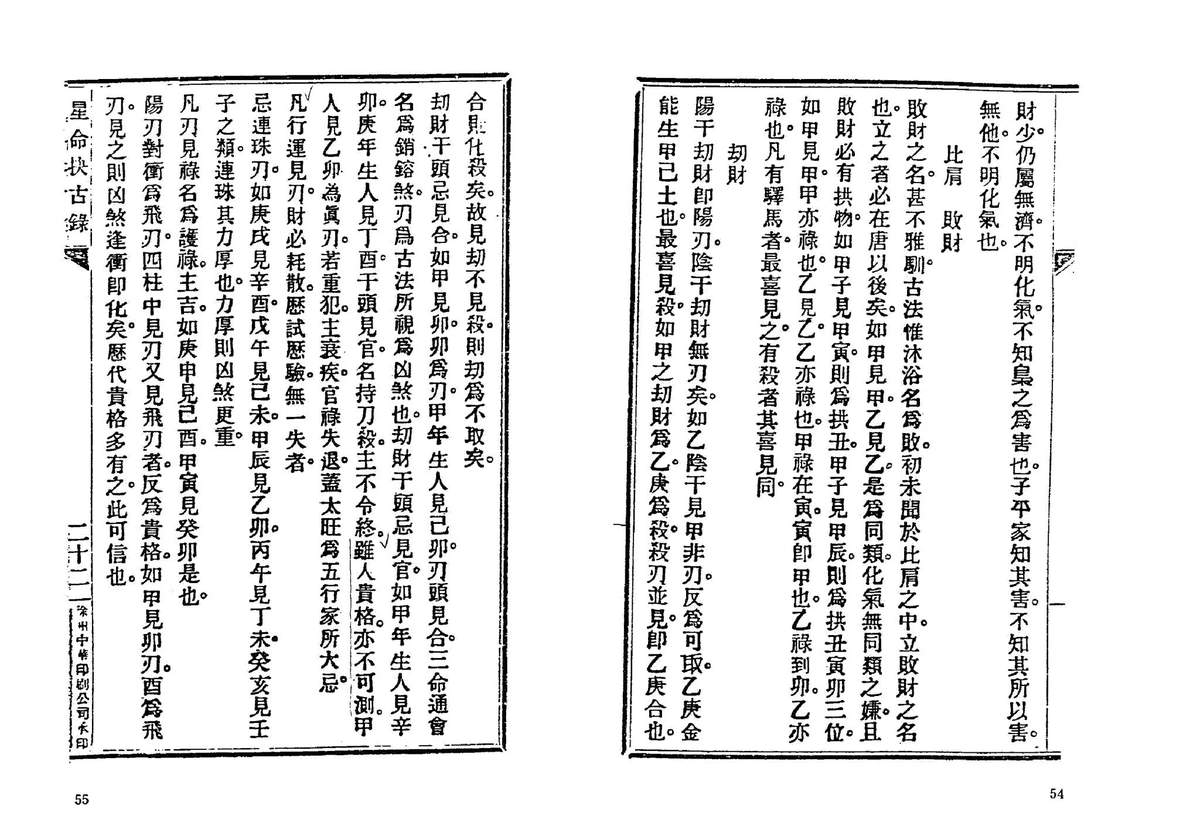 財少。仍屬無濟。不明化氣。不知梟之為害也。子平家知其害。不知其所以害。
無他。不明化氣也。
比肩　敗財
敗財之名。甚不雅馴。古法惟沐浴名為敗。初未聞於比肩之中。立敗財之名
也。立之者必在唐以後矣。如甲見甲。乙見乙。是為同類。化氣無同類之嫌。且
敗財必有拱物。如甲子見甲寅。則為拱丑。甲子見甲辰。則為拱丑寅卯三位。
如甲見甲。甲亦祿也。乙見乙。乙亦祿也。甲祿在寅。寅卽甲也。乙祿到卯。乙亦
祿也。凡有驛馬者。最喜見之。有殺者其喜見同。
刧財
陽干刧財卽陽刃。陰干刧財無刃矣。如乙陰干見甲非刃。反為可取。乙庚金
能生甲己土也。最喜見殺。如甲之刧財為乙。庚為殺。殺刃並見。卽乙庚合也。
54
合財化殺矣。故見刧不見殺。則刧為不取矣。
刧財干頭忌見合。如甲見卯。卯為刃。甲年生人見己卯。刃頭見合。三命通會
名為銷鎔煞。刃為古法所視為凶煞也。刧財干頭忌見官。如甲年生人見辛
卯。庚年生人見丁酉。干頭見官。名持刀殺。主不令終。雖人貴格。亦不可測。甲
人見乙卯為眞刃。若重犯。主衰疾。官祿失退。蓋太旺為五行家所大忌。
凡行運見刃。財必耗散。歷試歷驗。無一失者。
忌連珠刃。如庚戌見辛酉。戊午見己未。甲辰見乙卯。丙午見丁未。癸亥見壬
子之類。連珠其力厚也。力厚則凶煞更重。
凡刃見祿。名為護祿。主吉。如庚申見己酉。甲寅見癸卯是也。
陽刃對衝為飛刃。四柱中見刃又見飛刃者。反為貴格。如甲見卯刃。酉為飛
刃。見之則凶煞逢衝卽化矣。歷代貴格多有之。此可信也。
星命抉古錄
二十二
徐州中華印刷公司承印
55